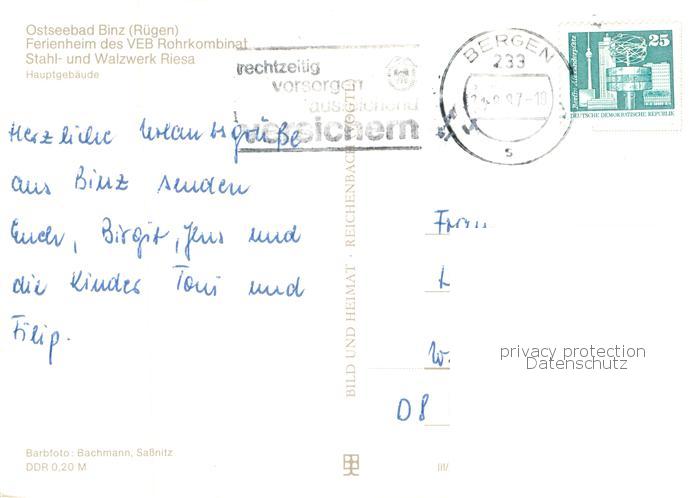 Ostseebad Binz (Rügen)
Ferienheim des VEB Rohrkombinat
Stahl- und Walzwerk Riesa
Hauptgebäude
rechtzeitig
vorsorgen
ausreichend
versichern
BERGEN
233
8.87-18
s
25
Berlin, Alexanderplatz
DEUTSCHE DEMOKRATISCHE REPUBLIK
Herzliche Urlaubsgrüße
aus Binz senden
Euch, Birgit, Jens und
die Kinder Toni und
Filip.
BILD UND HEIMAT · REICHENBACH (VOGTL)
D8
privacy protection
Datenschutz
Barbfoto: Bachmann, Saßnitz
DDR 0,20 M
III/